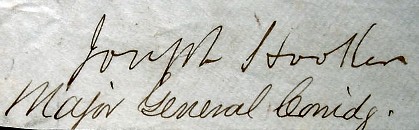 Joseph Hooker
Major General Comdg.